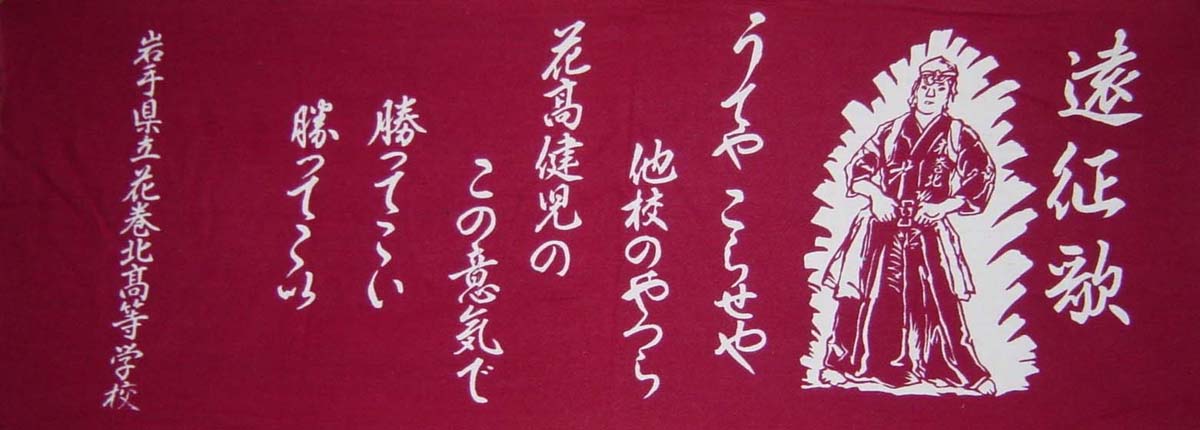 遠征歌
うてや こらせや
他校のやつら
花髙健児の
この意気で
勝ってこい
勝ってこい
岩手県立花巻北髙等学校